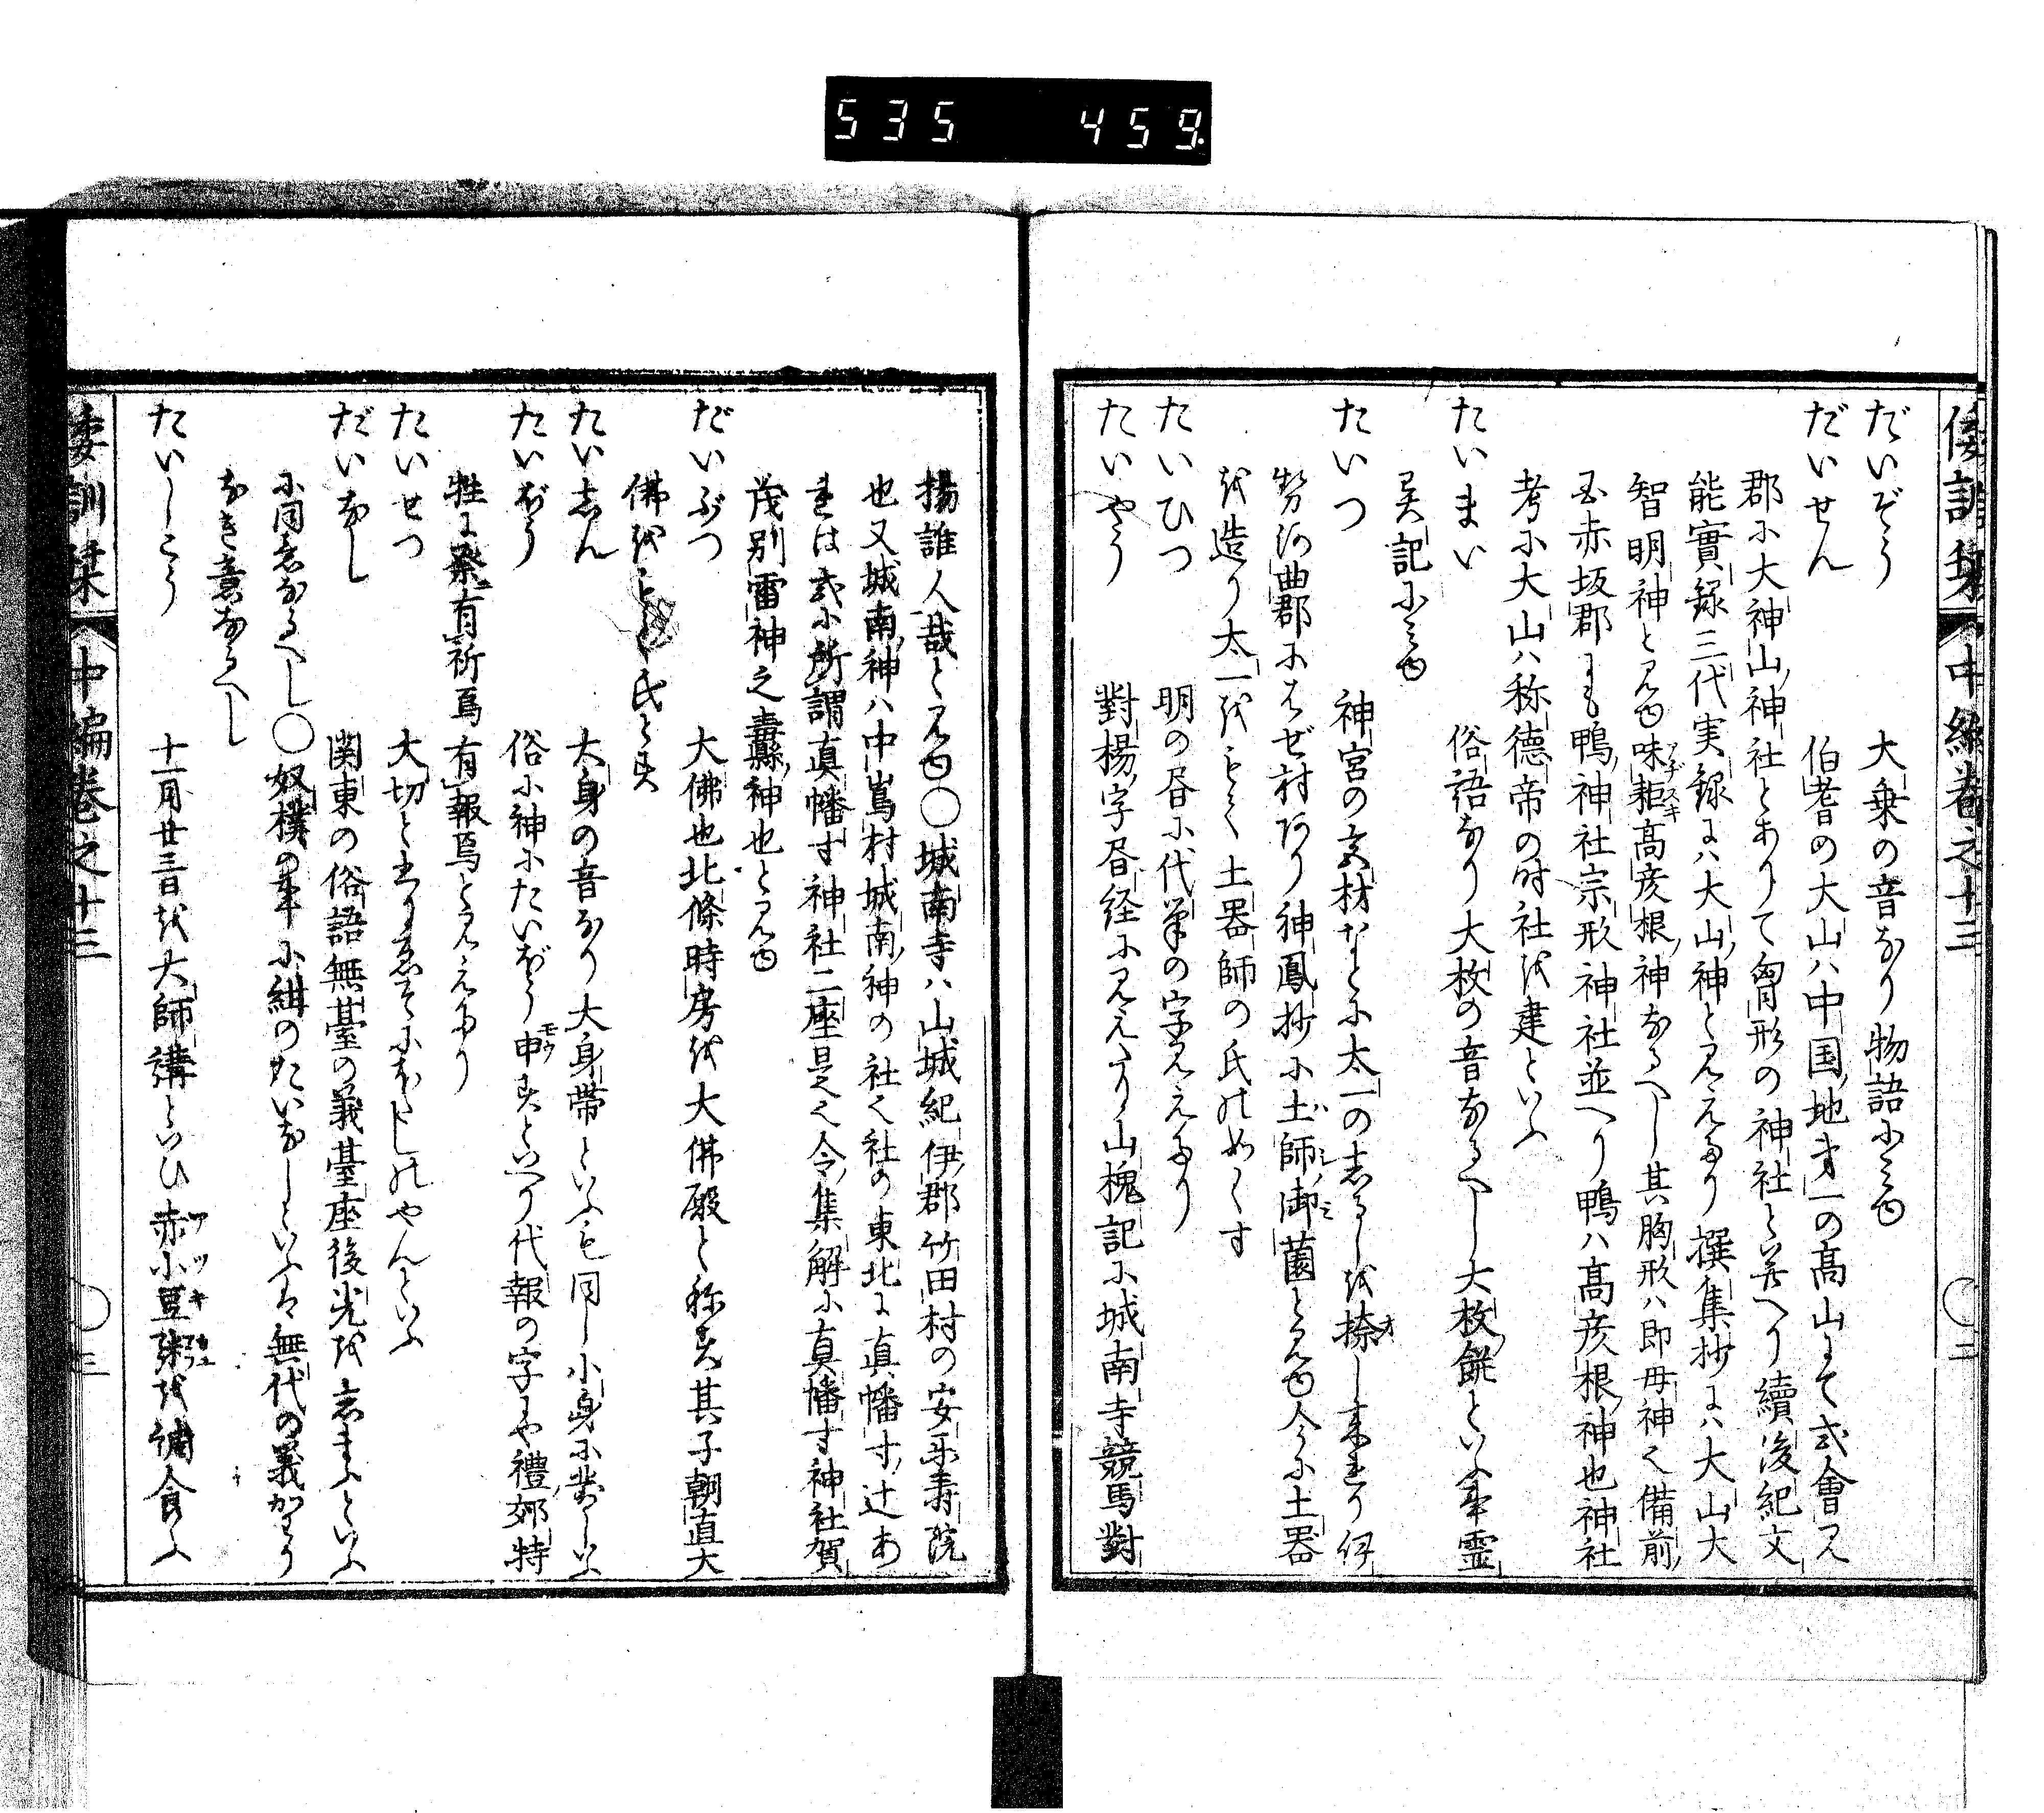 535 459
倭訓栞 中編巻之十三 〇二
だいぞう 大乗の音なり物語にみゆ
だいせん 伯耆の大山ハ中国地才一の高山にて式會見
郡に大神山神社とありて匈形の神社といへり續後紀文
能實録三代実録にハ大山神とみえたり撰集抄にハ大山大
智明神とみゆ味耜高彦根神なるへし其胸形ハ即毋神也備前
国赤坂郡にも鴨神社宗形神社並へり鴨ハ高彦根神也神社
考に大山ハ称徳帝の时社を建といふ
たいまい 俗語なり大枚の音なるへし大枚餅といふ事霊
異記にみゆ
たいつ 神宮の文材なとに太一の志るしを捺し来れり伊
勢河曲郡にをぜ村アリ神鳳抄に土師御薗とみゆ今に土器
を造り太一をもて土器師の氏のめくす
たいひつ 明の居に代筆の字みえたり
たいやう 對楊字居経にみえたり山槐記に城南寺競馬對
揚誰人哉とみゆ〇城南寺ハ山城紀伊郡竹田村の安楽寿院
也又城南神ハ中嶌村城南神の社也社の東北に真幡寸辻あ
りは式に所謂真幡寸神社二座是也令集解に真幡寸神社賀
茂別雷神之毒縣神也とみゆ
だいぶつ 大佛也北條時房を大佛殿と称す其子朝直大
佛を氏とす
たいしん 大身の音なり大身帯といふも同し小身に對しいふ
たいばう 俗に神にたいばう申すといへり代報の字にや禮郊特
牲に祭有祈焉有報焉とみえたり
たいせつ 大切と書り
だいなし 関東の俗語無䑓の義䑓座後光を志まふといふ
に同意なるへし〇奴僕の事に紺のたいなしといふは無代の義かハり
なき意なるへし
たいしこう 十一月廿三日を大師講といひ赤小豆粥を餔食ふ
倭訓栞 中編巻之十三 〇三